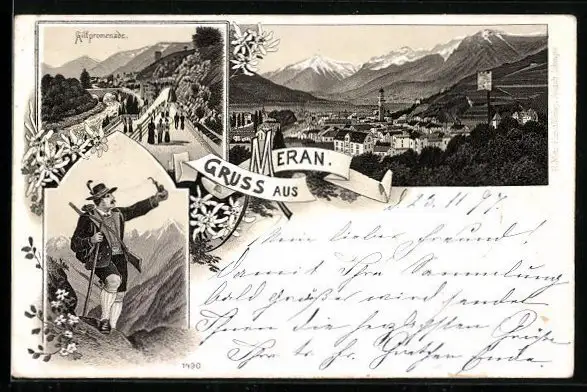 Gilfpromenade.
GRUSS AUS MERAN.
d 23. 11 97.
Mein lieber Freund!
damit Ihre Sammlung
bald größer wird sendet
Ihnen die herzlichsten Grüße
Ihre
1490